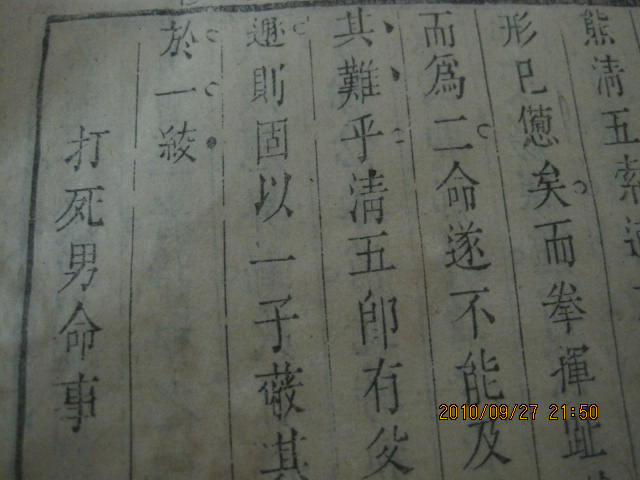 熊清五索
形已憊矣而拳揮趾
而爲二命遂不能及
其難乎清五卽有父
則固以一子蔽其
於一絞
打死男命事
2010/09/27 21:50